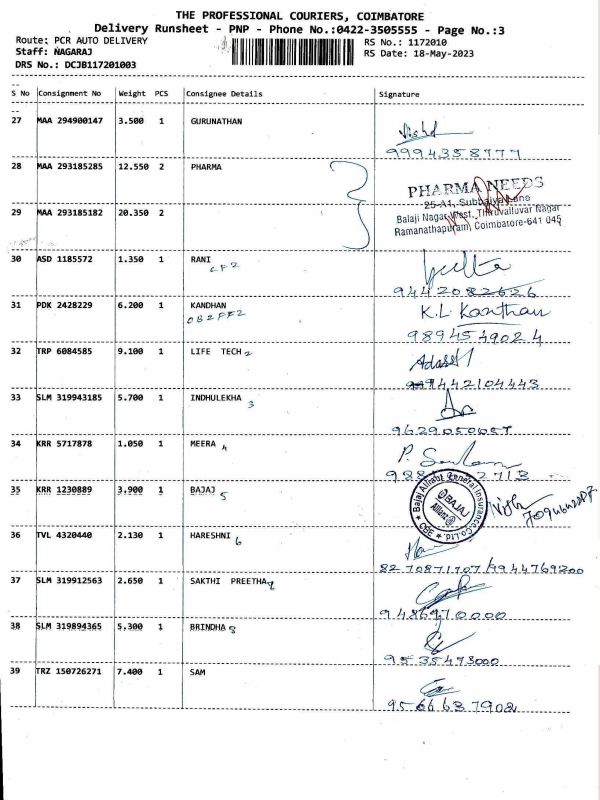 THE PROFESSIONAL COURIERS, COIMBATORE
Delivery Runsheet - PNP - Phone No.:0422-3505555 - Page No.:3
Route: PCR AUTO DELIVERY RS No.: 1172010
Staff: NAGARAJ RS Date: 18-May-2023
DRS No.: DCJB117201003
S No Consignment No Weight PCS Consignee Details Signature
27 MAA 294900147 3.500 1 GURUNATHAN
9994358777
28 MAA 293185285 12.550 2 PHARMA
PHARMA NEEDS
25-A1, Subbaiya Lane
29 MAA 293185182 20.350 2
Balaji Nagar West, Thiruvalluvar Nagar
Ramanathapuram, Coimbatore-641 045
30 ASD 1185572 1.350 1 RANI
9442082626
31 PDK 2428229 6.200 1 KANDHAN K.L Kanthan
9894549024
32 TRP 6084585 9.100 1 LIFE TECH 2
9442104443
33 SLM 319943185 5.700 1 INDHULEKHA 3
9629050057
34 KRR 5717878 1.050 1 MEERA 4
35 KRR 1230889 3.900 1 BAJAJ 5
Bajaj Allianz General Insurance Co. Ltd. * CBE *
BAJAJ
Allianz
36 TVL 4320440 2.130 1 HARESHNI 6
8270871707/9944769200
37 SLM 319912563 2.650 1 SAKTHI PREETHA 7
9486970000
38 SLM 319894365 5.300 1 BRINDHA 8
9535473000
39 TRZ 150726271 7.400 1 SAM
9566637902